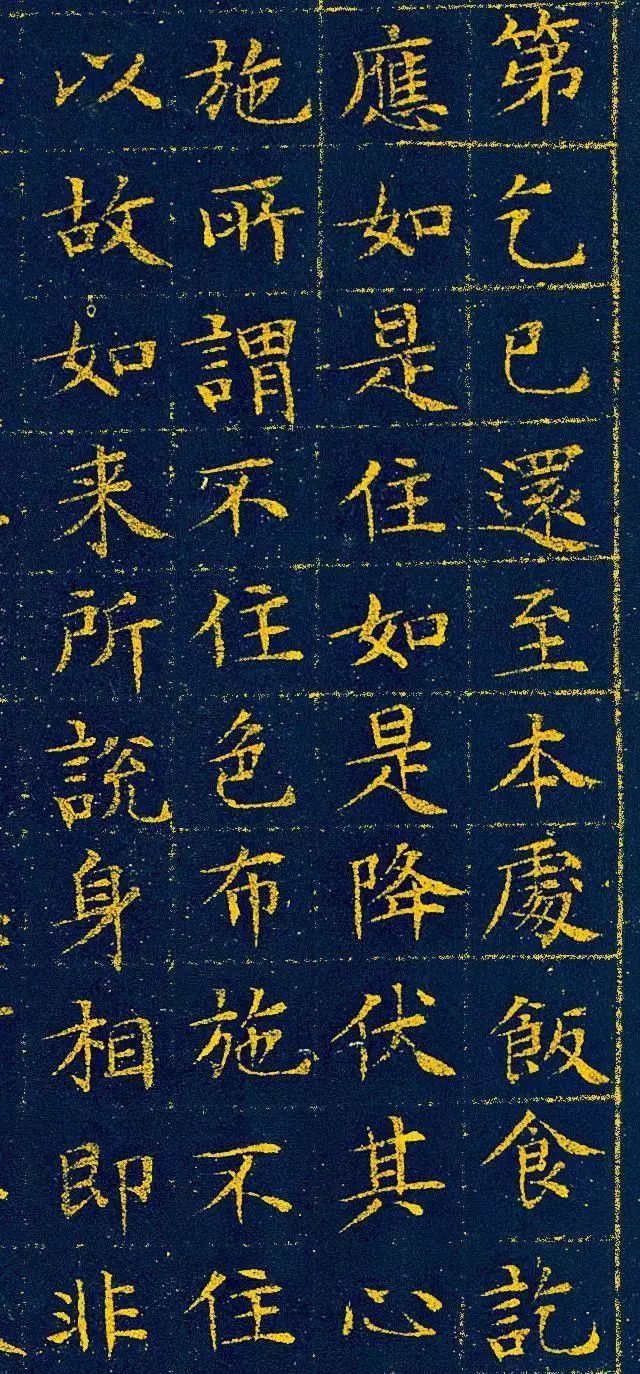 第乞已還至本處飯食訖
應如是住如是降伏其心
施所謂不住色布施不住
以故如来所說身相即非